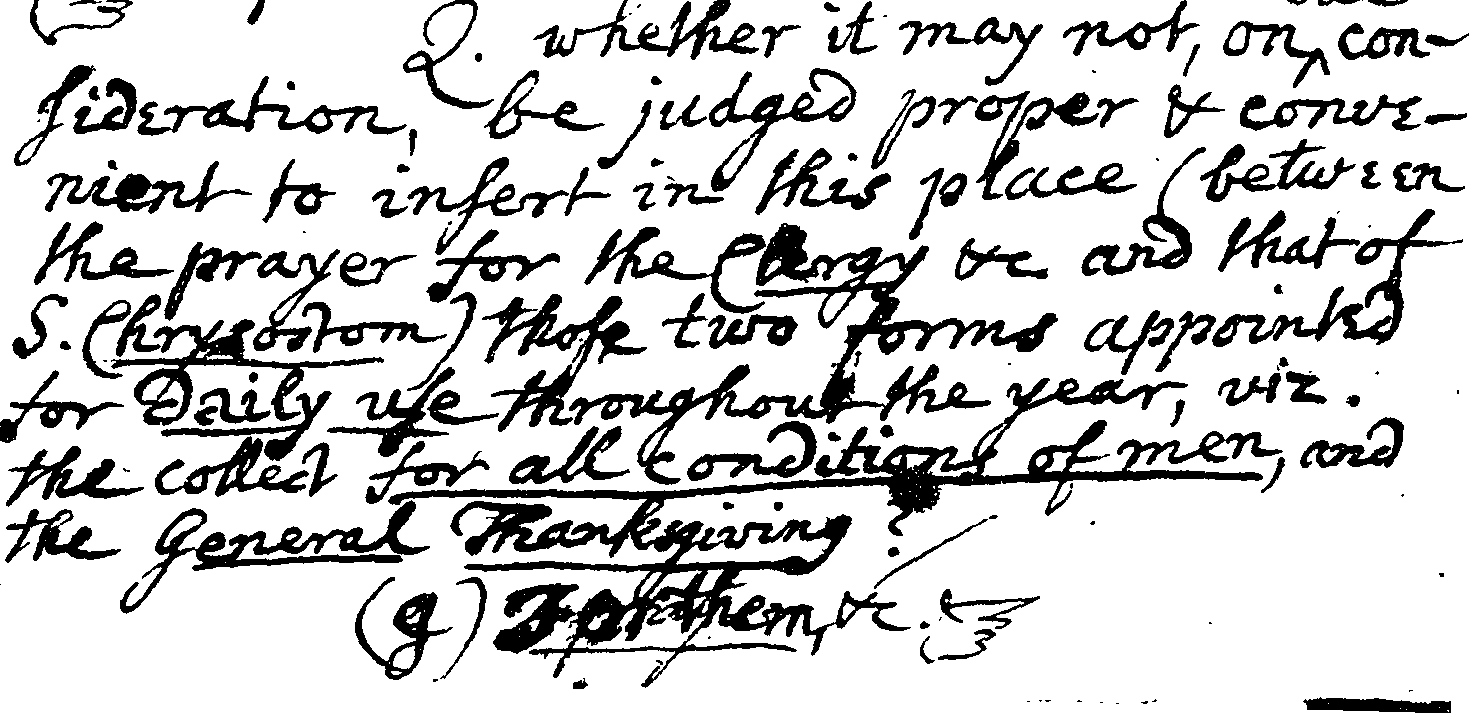 Q. whether it may not, on ‸ con-
ſideration, be judged proper & conve-
nient to inſert in this place (between
the prayer for the Clergy &c and that of
S. Chrysostom) thoſe two forms appointed
for Daily uſe throughout the year, viz.
the collect for all conditions of men, and
the General Thanksgiving?
(g) &c.